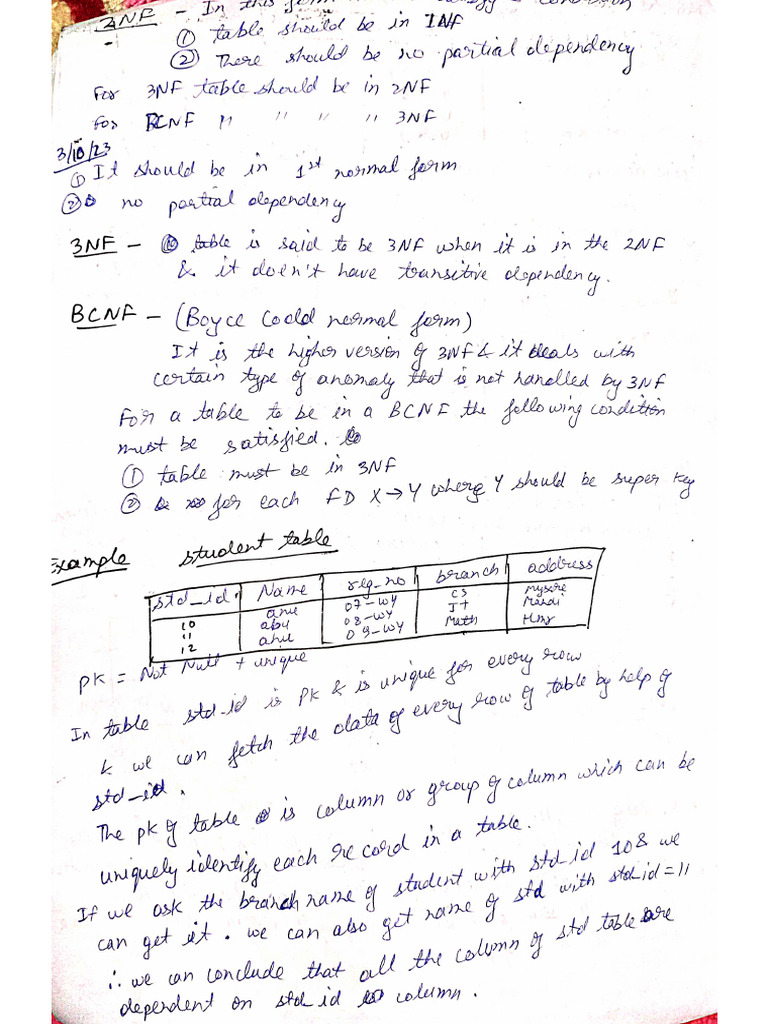 2NF - In this form
① table should be in 1NF
② There should be no partial dependency
For 3NF table should be in 2NF
For BCNF " " " " 3NF
3/10/23
① It should be in 1st normal form
② no partial dependency
3NF - table is said to be 3NF when it is in the 2NF
& it doesn't have transitive dependency.
BCNF - (Boyce Codd normal form)
It is the higher version of 3NF & it deals with
certain type of anomaly that is not handled by 3NF
For a table to be in a BCNF the following condition
must be satisfied.
① table must be in 3NF
② for each FD X → Y where Y should be super key
Example student table
std_id Name reg_no branch address
10 anu 07-WY CS Mysore
11 abu 08-WY It
12 ahu 09-WY Math
PK = Not Null + unique
In table std_id is PK & is unique for every row
& we can fetch the data of every row of table by help of
std_id.
The PK of table is column or group of column which can be
uniquely identify each record in a table.
If we ask the branch name of student with std_id 10 & we
can get it. we can also get name of std with std_id = 11
∴ we can conclude that all the column of std table are
dependent on std id column.